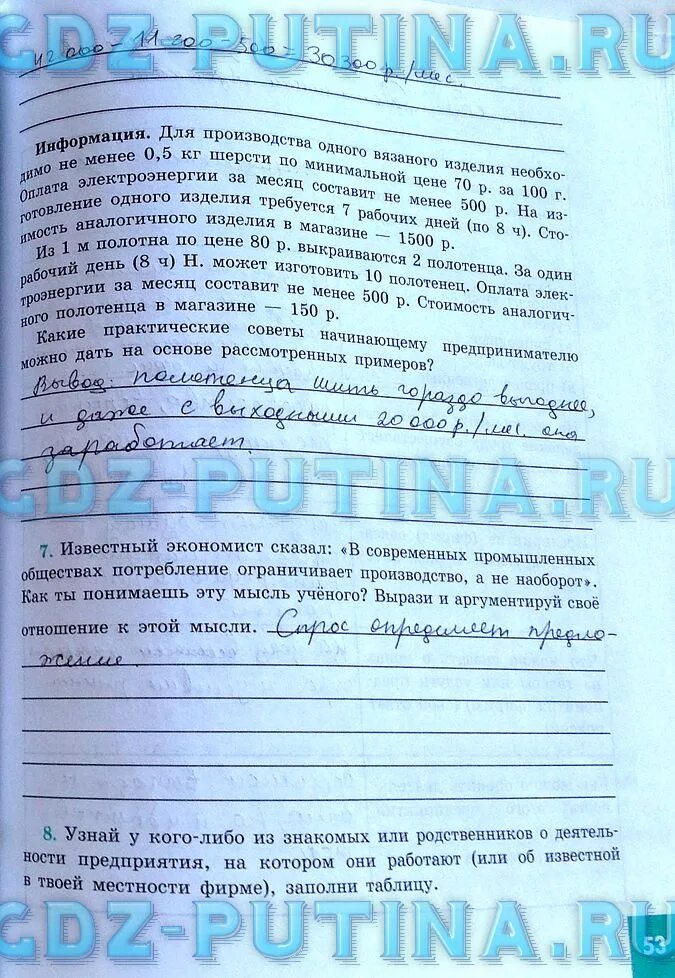 GDZ-PUTINA.RU
42 000 - 11 200 - 500 = 30 300 р./мес.
Информация. Для производства одного вязаного изделия необхо-
димо не менее 0,5 кг шерсти по минимальной цене 70 р. за 100 г.
Оплата электроэнергии за месяц составит не менее 500 р. На из-
готовление одного изделия требуется 7 рабочих дней (по 8 ч). Сто-
имость аналогичного изделия в магазине — 1500 р.
Из 1 м полотна по цене 80 р. выкраиваются 2 полотенца. За один
рабочий день (8 ч) Н. может изготовить 10 полотенец. Оплата элек-
троэнергии за месяц составит не менее 500 р. Стоимость аналогич-
ного полотенца в магазине — 150 р.
Какие практические советы начинающему предпринимателю
можно дать на основе рассмотренных примеров?
Вывод: полотенца шить гораздо выгоднее,
и даже с выходными 20 000 р./мес. она
заработает.
GDZ-PUTINA.RU
7. Известный экономист сказал: «В современных промышленных
обществах потребление ограничивает производство, а не наоборот».
Как ты понимаешь эту мысль учёного? Вырази и аргументируй своё
отношение к этой мысли. Спрос определяет предло-
жение
8. Узнай у кого-либо из знакомых или родственников о деятель-
ности предприятия, на котором они работают (или об известной
в твоей местности фирме), заполни таблицу.
GDZ-PUTINA.RU
53